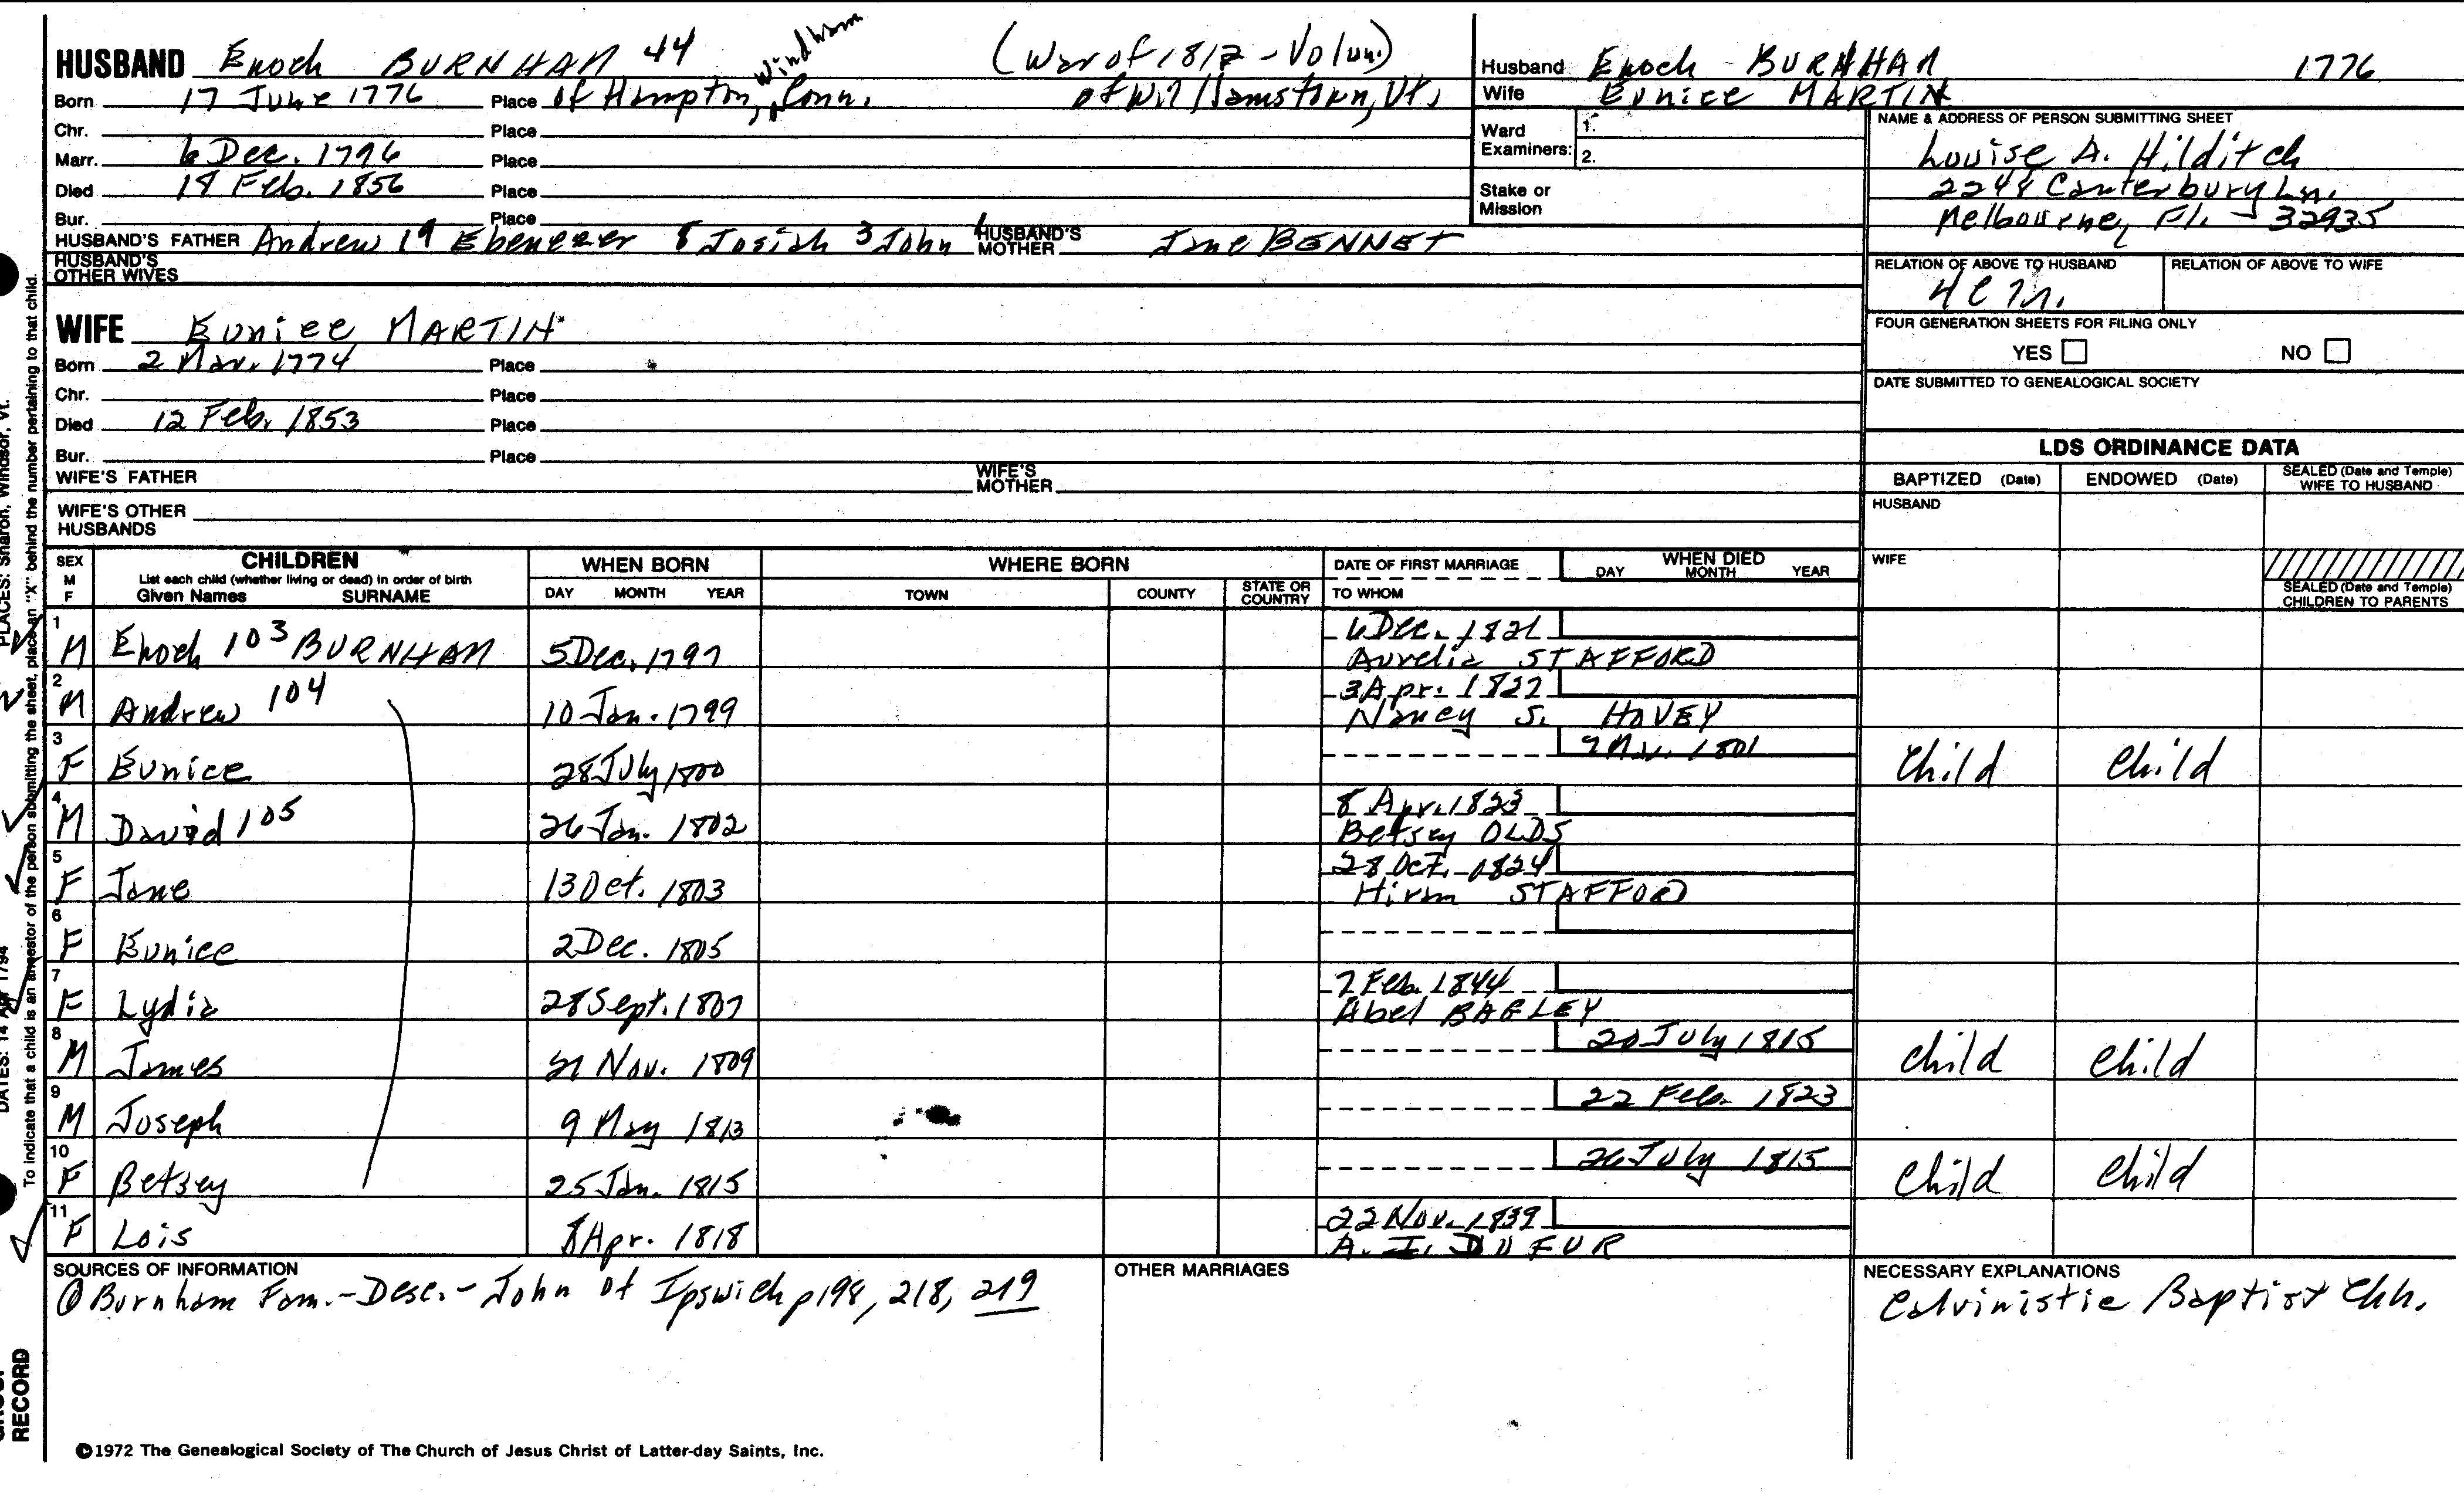 HUSBAND Enoch BURNHAM 44 Windham (War of 1812 - Volun.)
Born 17 June 1776 Place of Hampton, Conn. of Williamstown, Vt.
Chr. Place
Marr. 6 Dec. 1796 Place
Died 18 Feb. 1856 Place
Bur. Place
HUSBAND'S FATHER Andrew 19 Ebenezer 8 Josiah 3 John 1 HUSBAND'S MOTHER Jane BENNET
HUSBAND'S OTHER WIVES
Husband Enoch BURNHAM 1776
Wife Eunice MARTIN
Ward Examiners: 1.
2.
Stake or Mission
NAME & ADDRESS OF PERSON SUBMITTING SHEET
Louise A. Hilditch
2244 Canterbury Ln.
Melbourne, Fl. - 32935
RELATION OF ABOVE TO HUSBAND RELATION OF ABOVE TO WIFE
FOUR GENERATION SHEETS FOR FILING ONLY
YES NO
DATE SUBMITTED TO GENEALOGICAL SOCIETY
WIFE Eunice MARTIN
Born 2 Mar. 1774 Place
Chr. Place
Died 12 Feb. 1853 Place
Bur. Place
WIFE'S FATHER WIFE'S MOTHER
WIFE'S OTHER HUSBANDS
LDS ORDINANCE DATA
BAPTIZED (Date) ENDOWED (Date) SEALED (Date and Temple) WIFE TO HUSBAND
HUSBAND
WIFE
SEALED (Date and Temple) CHILDREN TO PARENTS
SEX M F CHILDREN List each child (whether living or dead) in order of birth Given Names SURNAME
WHEN BORN DAY MONTH YEAR
WHERE BORN TOWN COUNTY STATE OR COUNTRY
DATE OF FIRST MARRIAGE TO WHOM
WHEN DIED DAY MONTH YEAR
1 M Enoch 103 BURNHAM 5 Dec. 1797 6 Dec. 1821
Aurelia STAFFORD
2 M Andrew 104 10 Jan. 1799 3 Apr. 1822
Nancy S. HOVEY
3 F Eunice 28 July 1800 1801 Child Child
4 M David 105 26 Jan. 1802 8 Apr. 1823
Betsey OLDS
5 F Jane 13 Oct. 1803 28 Oct. 1824
Hiram STAFFORD
6 F Eunice 2 Dec. 1805
7 F Lydia 28 Sept. 1807 7 Feb. 1844
Abel BAGLEY
8 M James 21 Nov. 1809 20 July 1815 Child Child
9 M Joseph 9 May 1813 22 Feb. 1823
10 F Betsey 25 Jan. 1815 26 July 1815 Child Child
11 F Lois 8 Apr. 1818 22 Nov. 1839
A. I. DUFUR
SOURCES OF INFORMATION
Burnham Fam. - Desc. - John of Ipswich p 198, 218, 219
OTHER MARRIAGES
NECESSARY EXPLANATIONS
Calvinistic Baptist Chh.
©1972 The Genealogical Society of The Church of Jesus Christ of Latter-day Saints, Inc.
To indicate that a child is an ancestor of the person submitting the sheet, place an "X" behind the number pertaining to that child.
PLACES: Sharon, Windsor, Vt.
DATES: 14 Apr 1794
RECORD